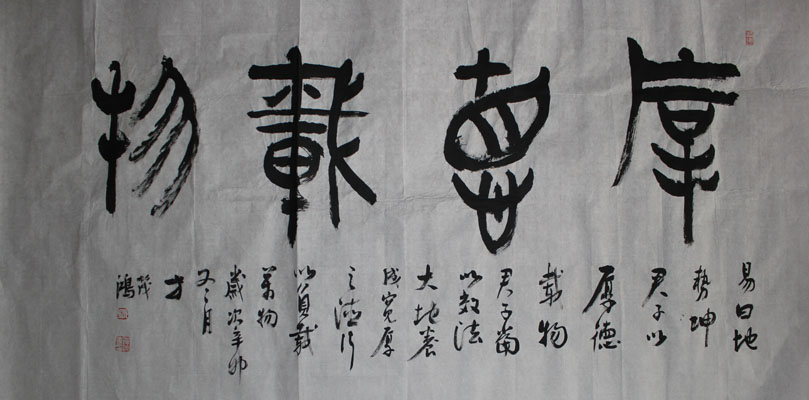 厚悳載物
易曰地
勢坤
君子以
厚德
載物
君子當
以效法
大地養
成寬厚
之德行
以負載
萬物
歲次辛卯
月
鴻